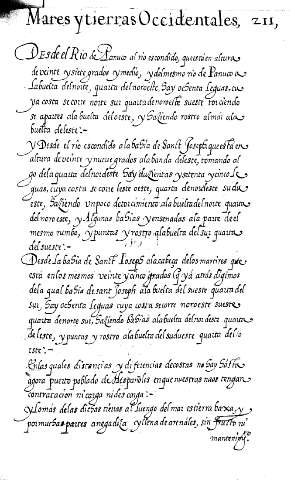 Mares y tierras Occidentales, 211,
Desde el Rio de Panuco al rio escondido, questa en altura
de veinte y siete grados y medio, y del mesmo rio de Panuco a
la buelta del norte, quarta del nordeste hay ochenta leguas. cu
ya costa se corre norte sur quarta de nordeste sueste torciendo
se a partes a la buelta del oeste, y haziendo rostro al mar a la
buelta del este:~
Y Desde el rio escondido a la bahia de Sanct Joseph questa en
altura de veinte y nueve grados a la banda del este, tomando al
go de la quarta del nordeste hay duzientas y setenta y cinco le
guas, cuya costa se corre leste oeste, quarta de nordeste sudu
este, haziendo un poco de torcimiento a la buelta del norte quarta
del noroeste, y Algunas bahias y ensenadas a la parte del
mesmo rumbo, y puntas y rostro a la buelta del sur quarta
del sueste:~
Desde La bahia de Sanct Joseph a la cabeça de los martires que
esta en los mesmos veinte y cinco grados q̃ ya atras digimos
de la qual bahia de sanct Joseph a la buelta del sueste quarta del
sur, hay ochenta leguas cuya costa se corre noroeste sueste
quarta de norte sur, haziendo bahias a la buelta del nordeste quarta
del este, y puntas y rostro a la buelta del sudueste quarta del o
este:~
En las quales distancias y diferencias de costas no hay hasta
agora puerto poblado de Hespañoles en que nuestras naos tengan
contratacion ni carga ni descarga:~
Y Lo mas de las dichas tierras al luengo del mar es tierra baxa, y
por muchas partes anegadiza y llena de arenales, sin fructo ni
mantenimy.º